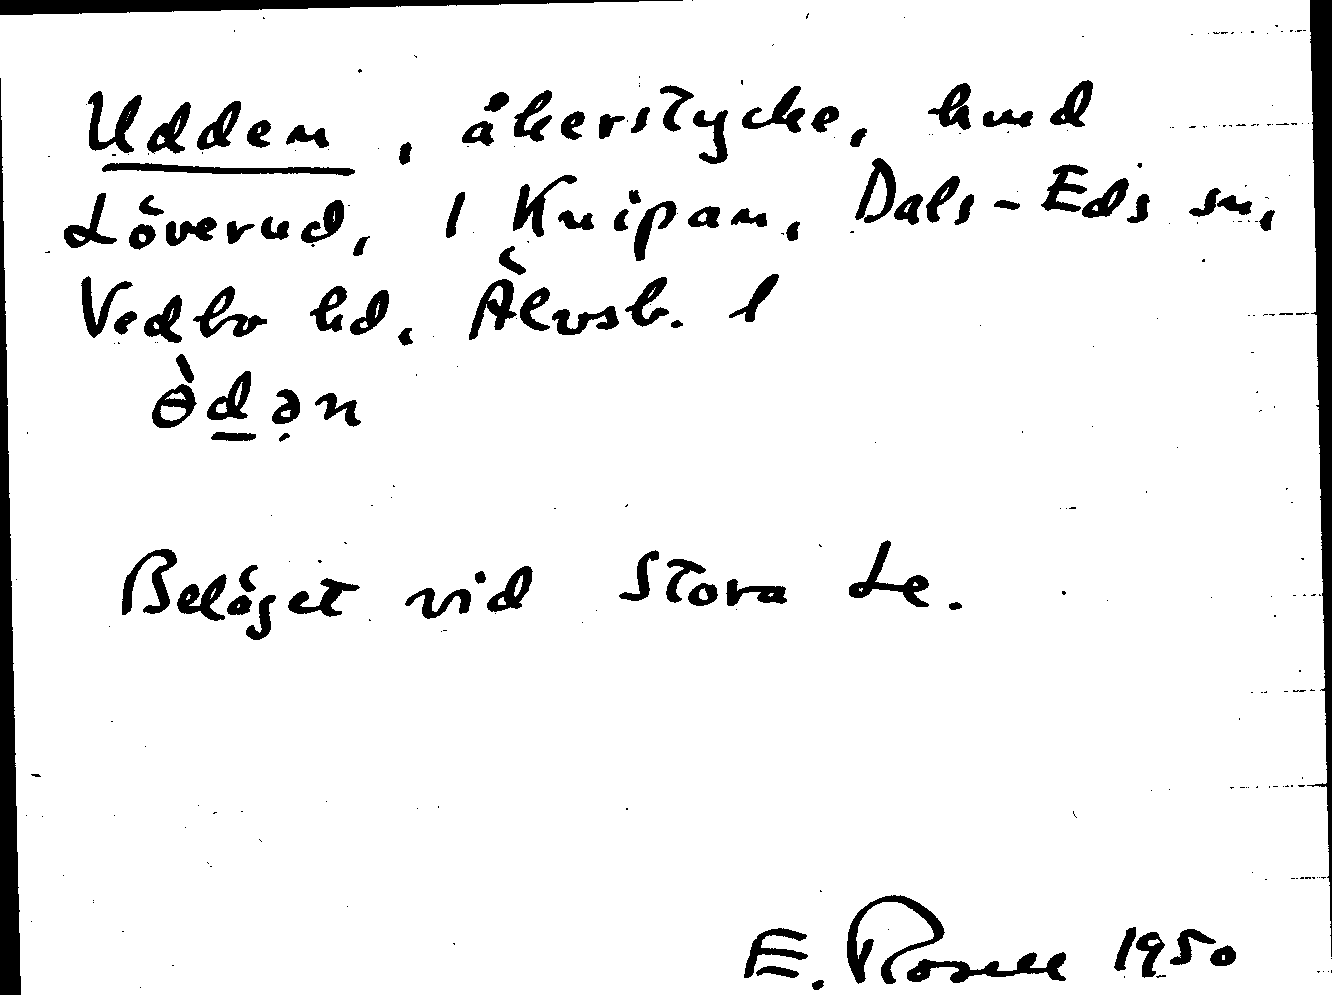 Udden, åkerstycke, hmd
Löverud, 1 Knipan, Dals-Eds sn,
Vedbo hd. Älvsb. l
ɵ̀d̲ə̣n
Beläget vid Stora Le.
E. Rosell 1950